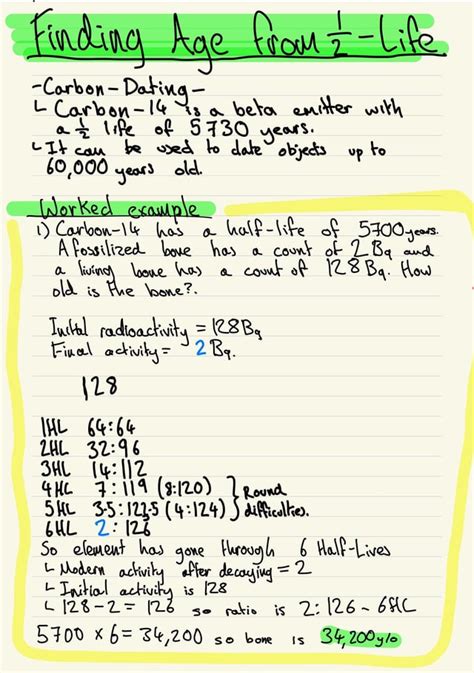 Finding Age from ½-Life
-Carbon-Dating-
↳ Carbon-14 is a beta emitter with
a ½ life of 5730 years.
↳ It can be used to date objects up to
60,000 years old.
Worked example
1) Carbon-14 has a half-life of 5700 years.
A fossilized bone has a count of 2Bq and
a living bone has a count of 128Bq. How
old is the bone?.
Initial radioactivity = 128Bq
Final activity = 2Bq.
128
1HL 64:64
2HL 32:96
3HL 14:112
4HL 7:119 (8:120)
5HL 3.5:123.5 (4:124)
} Round
difficulties.
6HL 2:126
So element has gone through 6 Half-Lives
↳ Modern activity after decaying = 2
↳ Initial activity is 128
↳ 128-2 = 126 so ratio is 2:126 - 6HL
5700 × 6 = 34,200 so bone is 34,200y/o